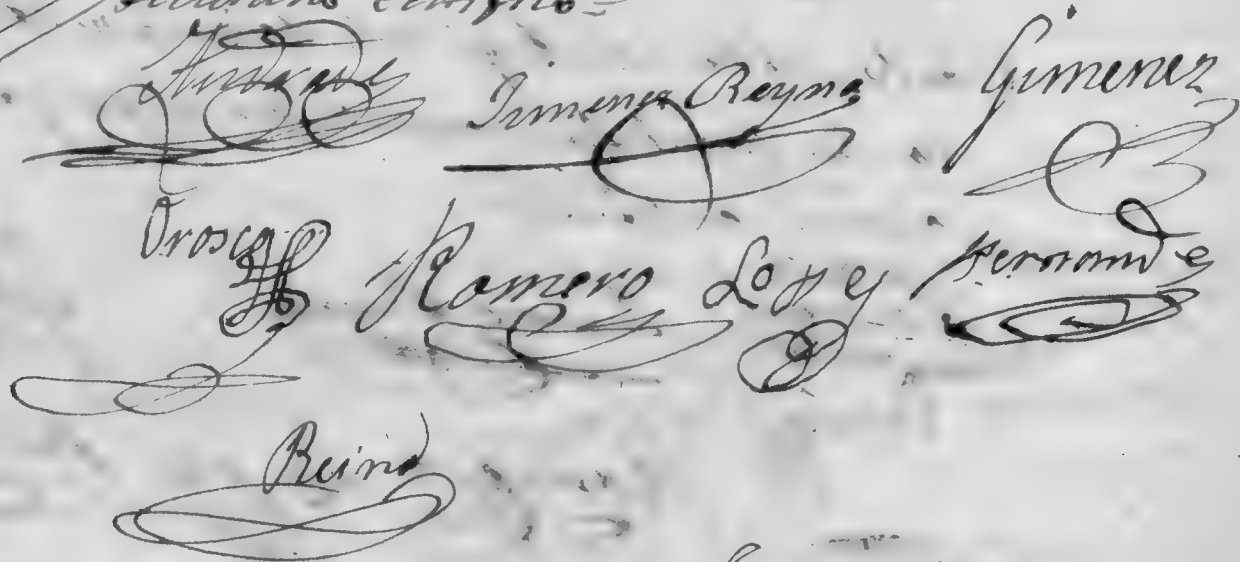 Jimenez Reyna Gimenez
Orosco Romero Lopez Fernandez
Reina